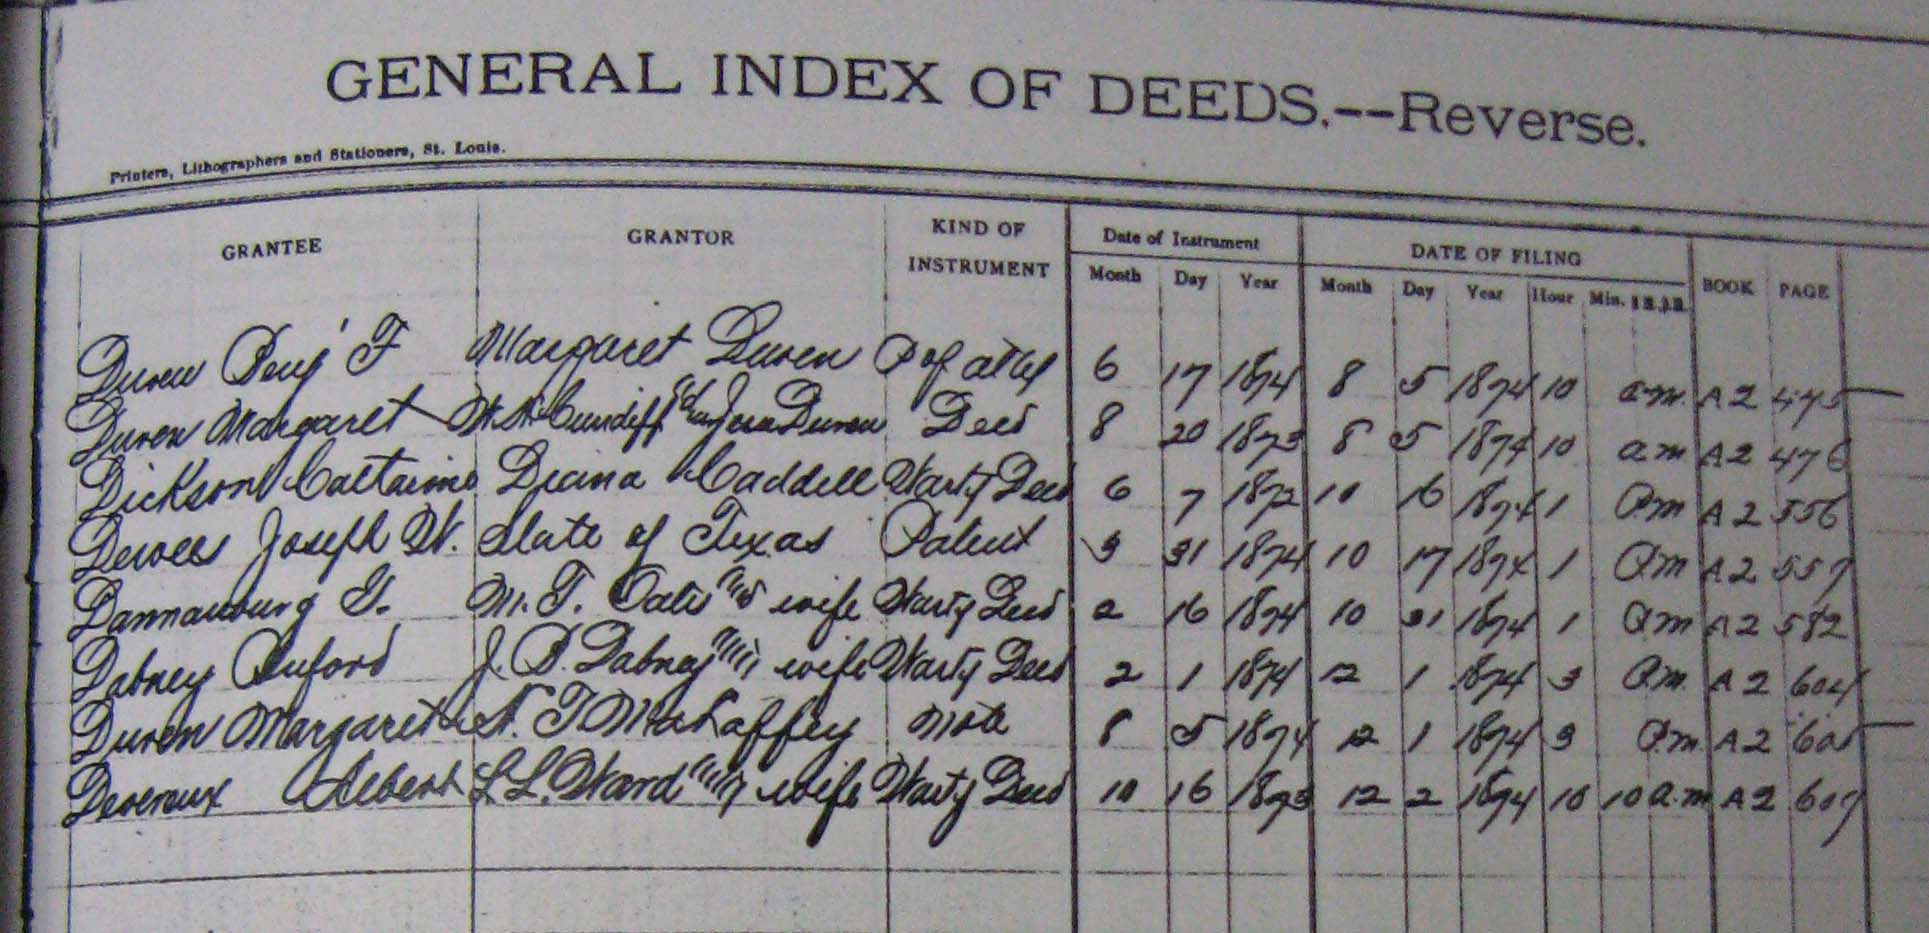 GENERAL INDEX OF DEEDS.--Reverse.
Printers, Lithographers and Stationers, St. Louis.
GRANTEE GRANTOR KIND OF INSTRUMENT Date of Instrument DATE OF FILING BOOK PAGE
Month Day Year Month Day Year Hour Min.
Duren Benj F Margaret Duren P of atty 6 17 1874 8 5 1874 10 a.m. A 2 475
Duren Margaret W. H. Cundiff Duren Deed 8 20 1873 8 5 1874 10 a.m A 2 476
Dickson Diana Caddell Warty Deed 6 7 1872 10 16 1874 1 P.m A 2 556
Dewees Joseph W. State of Texas Patent 3 31 1874 10 17 1874 1 P.m A 2 557
Dannanburg G. M. T. Oats wife Warty Deed 2 16 1874 10 31 1874 1 P.m A 2 582
Dabney Buford J. B. Dabney wife Warty Deed 2 1 1874 12 1 1874 3 P.m. A 2 604
Duren Margaret N. T. Mahaffey Note 8 5 1874 12 1 1874 3 P.m. A 2
Devereux Albert L. L. Ward wife Warty Deed 10 16 1873 12 2 1874 10 10 a.m A 2 607